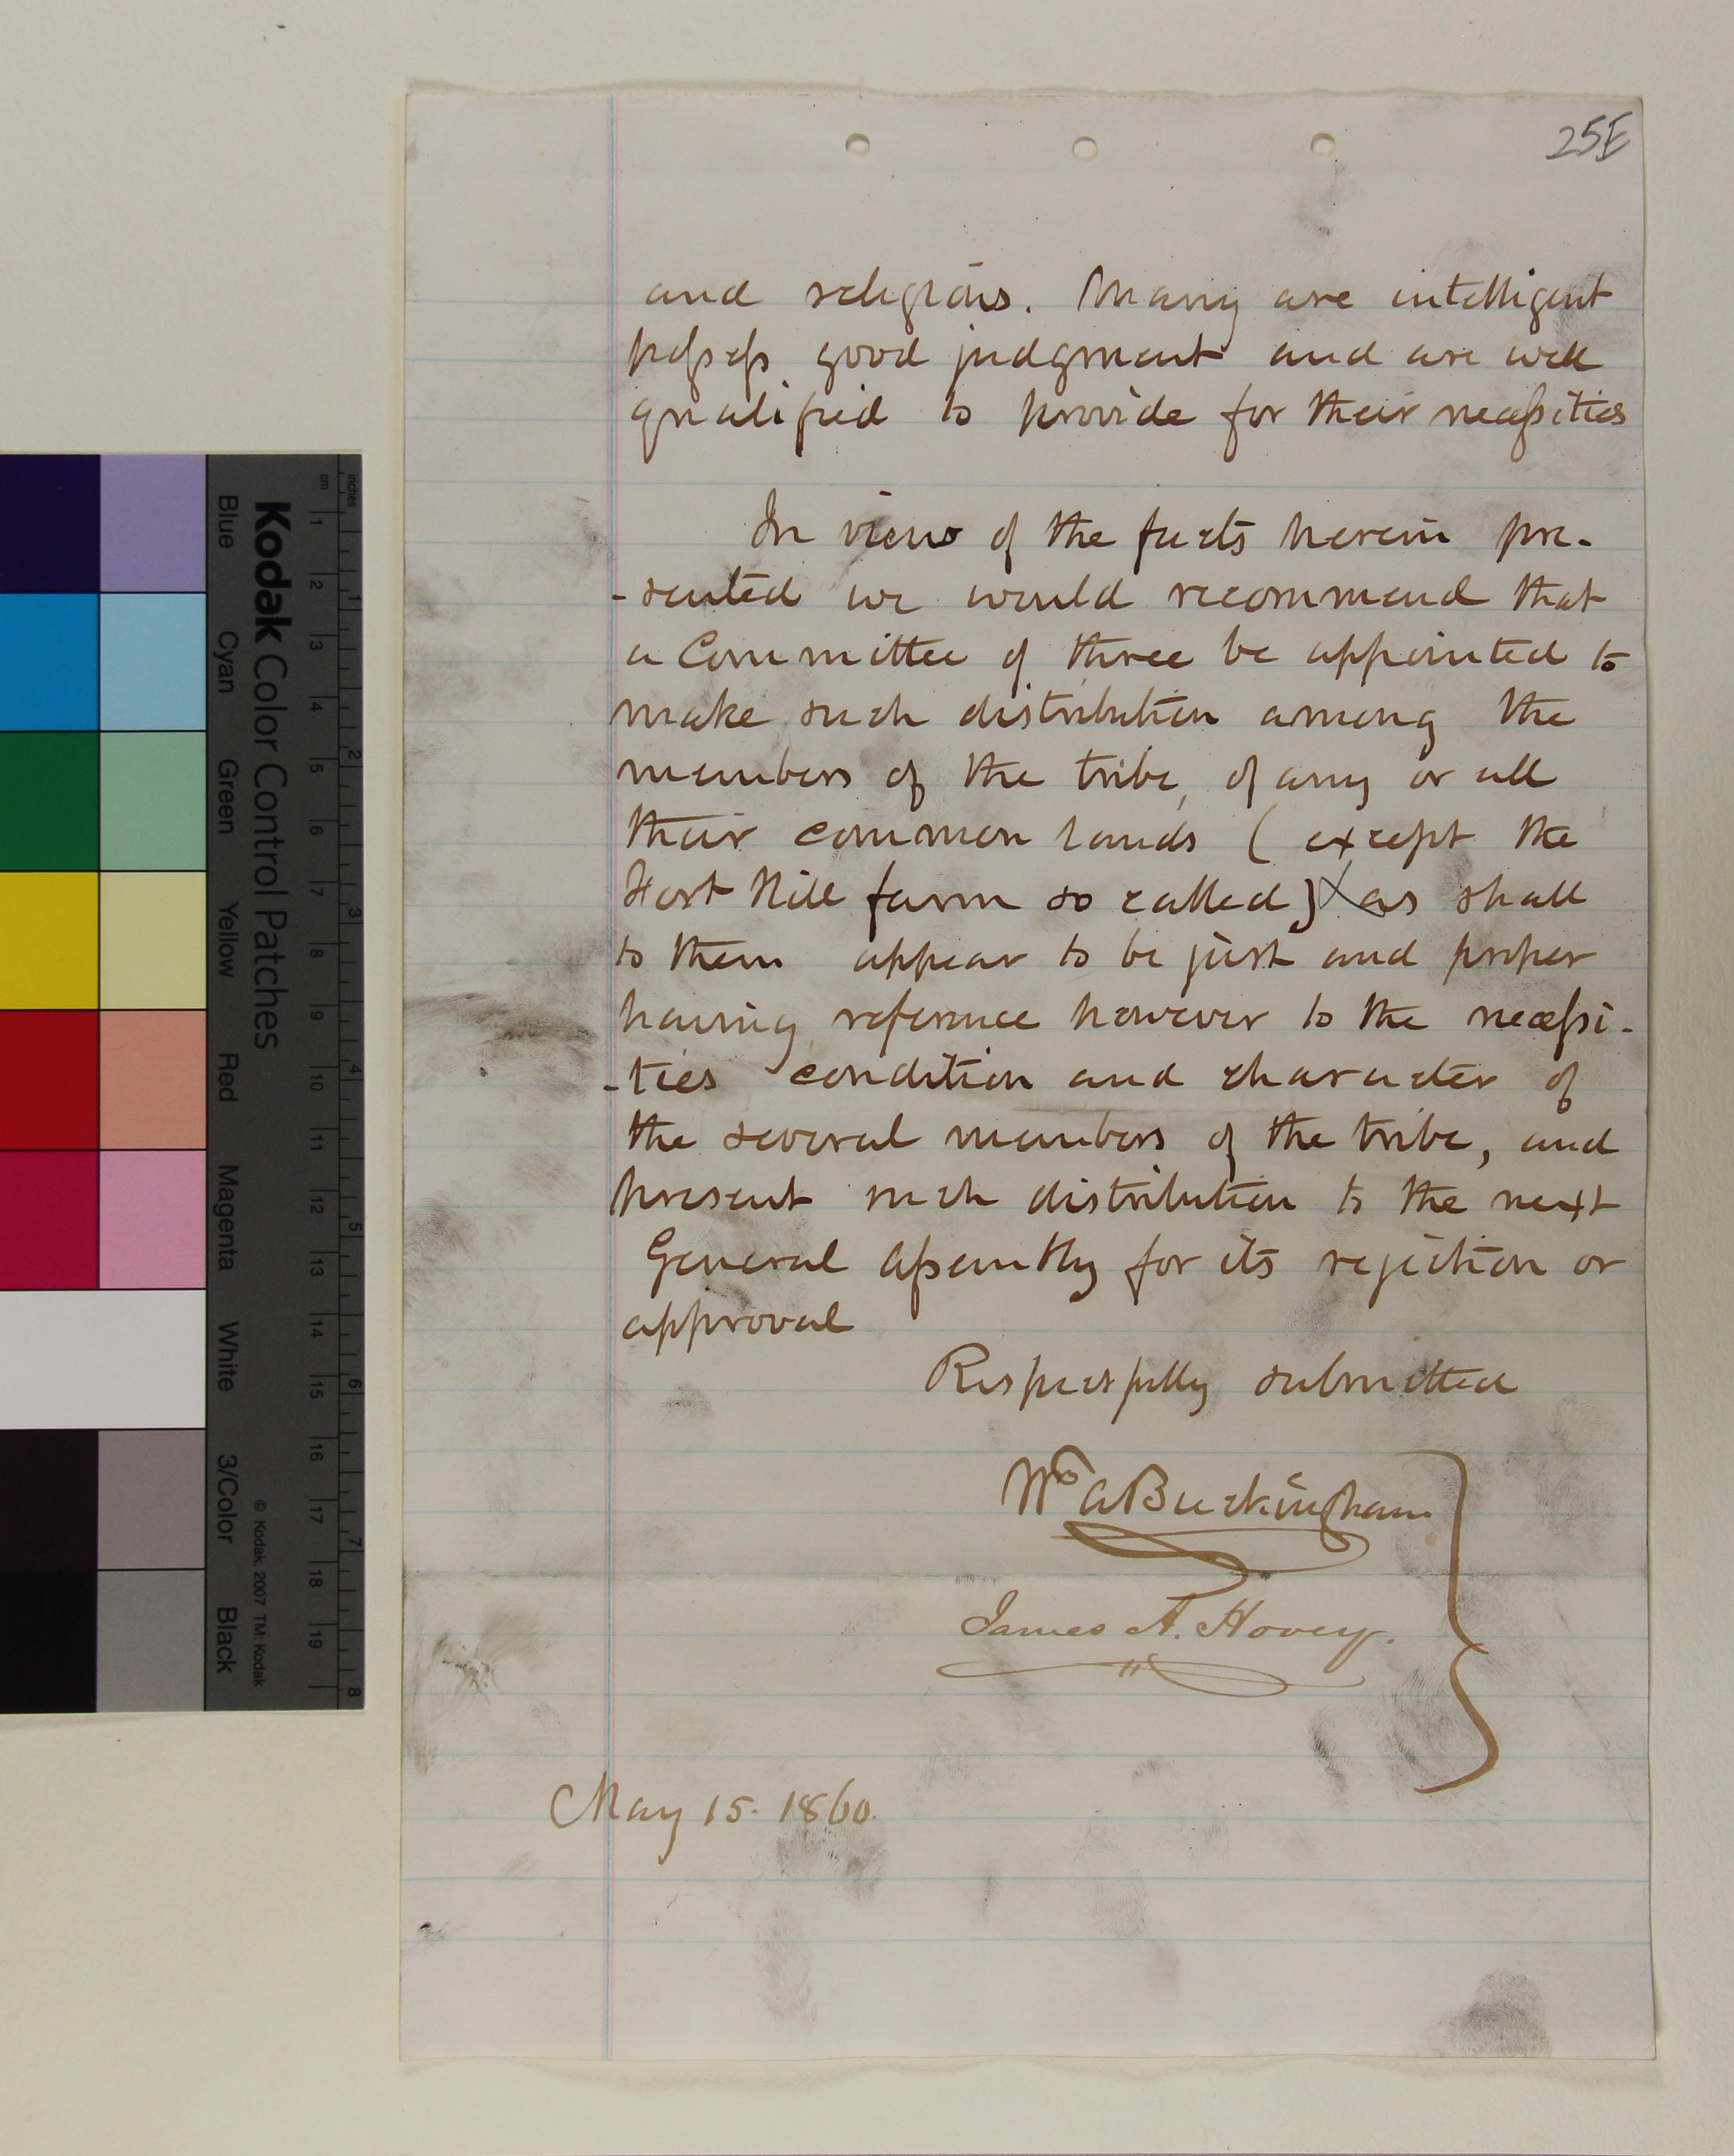 25E
and religious. Many are intelligent
possess good judgment and are well
qualified to provide for their necessities
In view of the facts herein pre-
-sented we would recommend that
a Committee of three be appointed to
make such distribution among the
members of the tribe, of any or all
their common lands (except the
Fort Hill farm so called) as shall
to them appear to be just and proper
having reference however to the necessi-
-ties condition and character of
the several members of the tribe, and
present such distribution to the next
General Assembly for its rejection or
approval
Respectfully submitted
Wm A Buckingham
James A. Hovey.
May 15. 1860.
inches
cm
1 2 3 4 5 6 7 8
1 2 3 4 5 6 7 8 9 10 11 12 13 14 15 16 17 18 19
Kodak Color Control Patches
© Kodak, 2007 TM: Kodak
Blue Cyan Green Yellow Red Magenta White 3/Color Black